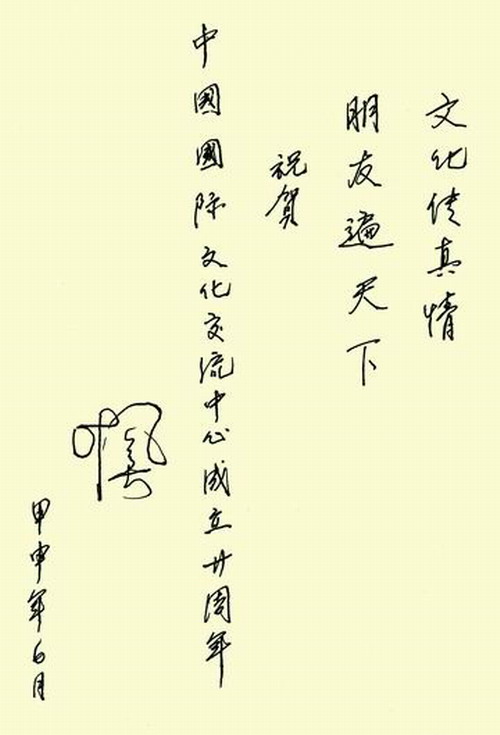 文化传真情
朋友遍天下
祝贺
中國國际文化交流中心成立廿周年
甲申年6月